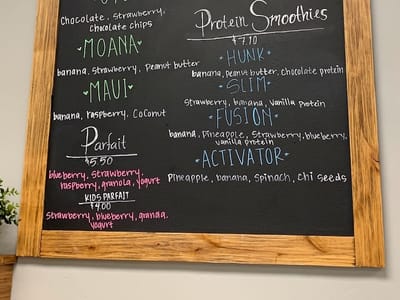 Chocolate, Strawberry,
Chocolate chips
MOANA
banana, Strawberry, Peanut butter
MAUI
banana, raspberry, Coconut
Parfait
$5.50
blueberry, Strawberry,
raspberry, granola, yogurt
KIDS PARFAIT
$4.00
Strawberry, blueberry, granola,
yogurt
Protein Smoothies
$7.10
HUNK
banana, Peanut butter, chocolate protein
SLIM
Strawberry, banana, Vanilla protein
FUSION
banana, Pineapple, Strawberry, blueberry,
vanilla protein
ACTIVATOR
Pineapple, banana, Spinach, chi seeds